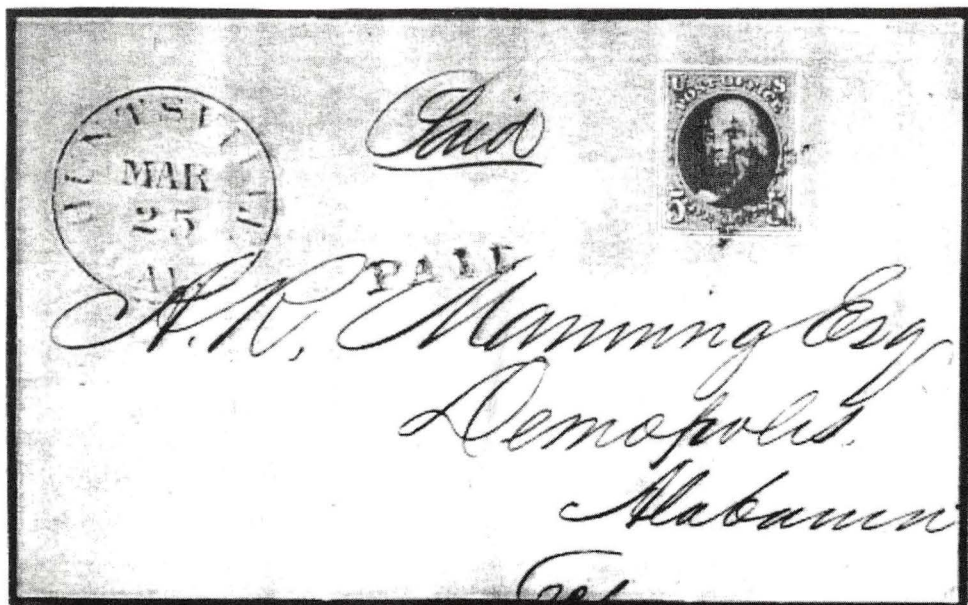 HUNTSVILLE
MAR
25
Al
Paid
U S
POST OFFICE
5 5
PAID
A. R. Manning Esq
Demopolis.
Alabama